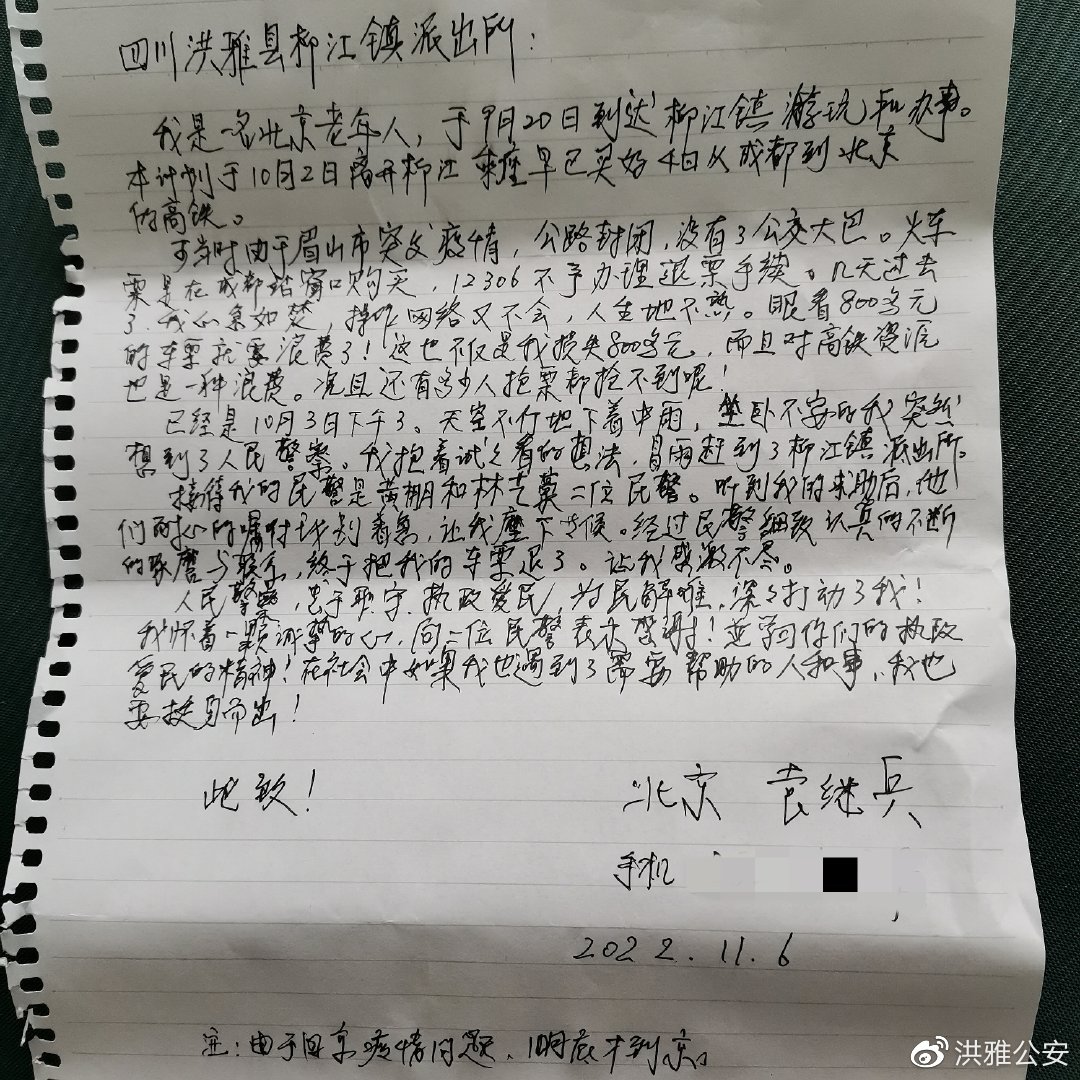 四川洪雅县柳江镇派出所：
我是一名北京老年人，于9月20日到达柳江镇游玩和办事。
本计划于10月2日离开柳江 乘座早已买好4日从成都到北京
的高铁。
可当时由于眉山市突发疫情，公路封闭，没有了公交大巴。火车
票是在成都站窗口购买，12306不予办理退票手续。几天过去
了，我心急如焚，操作网络又不会，人生地不熟。眼看800多元
的车票就要浪费了！这也不仅是我损失800多元，而且对高铁资源
也是一种浪费。况且还有多少人抢票都抢不到呢！
已经是10月3日下午了。天空不停地下着中雨，坐卧不安的我突然
想到了人民警察。我抱着试试看的想法，冒雨赶到了柳江镇派出所。
接待我的民警是黄棚和林艺 二位民警。听到我的求助后，他
们耐心的嘱咐我别着急，让我座下等候。经过民警细致认真的不断
的琢磨与联系，终于把我的车票退了。让我感激不尽。
人民警察，忠于职守，执政爱民，为民解难，深深打动了我！
我怀着一颗诚挚的心，向二位民警表示感谢！並学习你们的执政
爱民的精神！在社会中如果我也遇到了需要帮助的人和事，我也
要挺身而出！
此致！
北京 袁继兵
手机
2022.11.6
注：由于回京疫情问题，10月底才到京。
洪雅公安